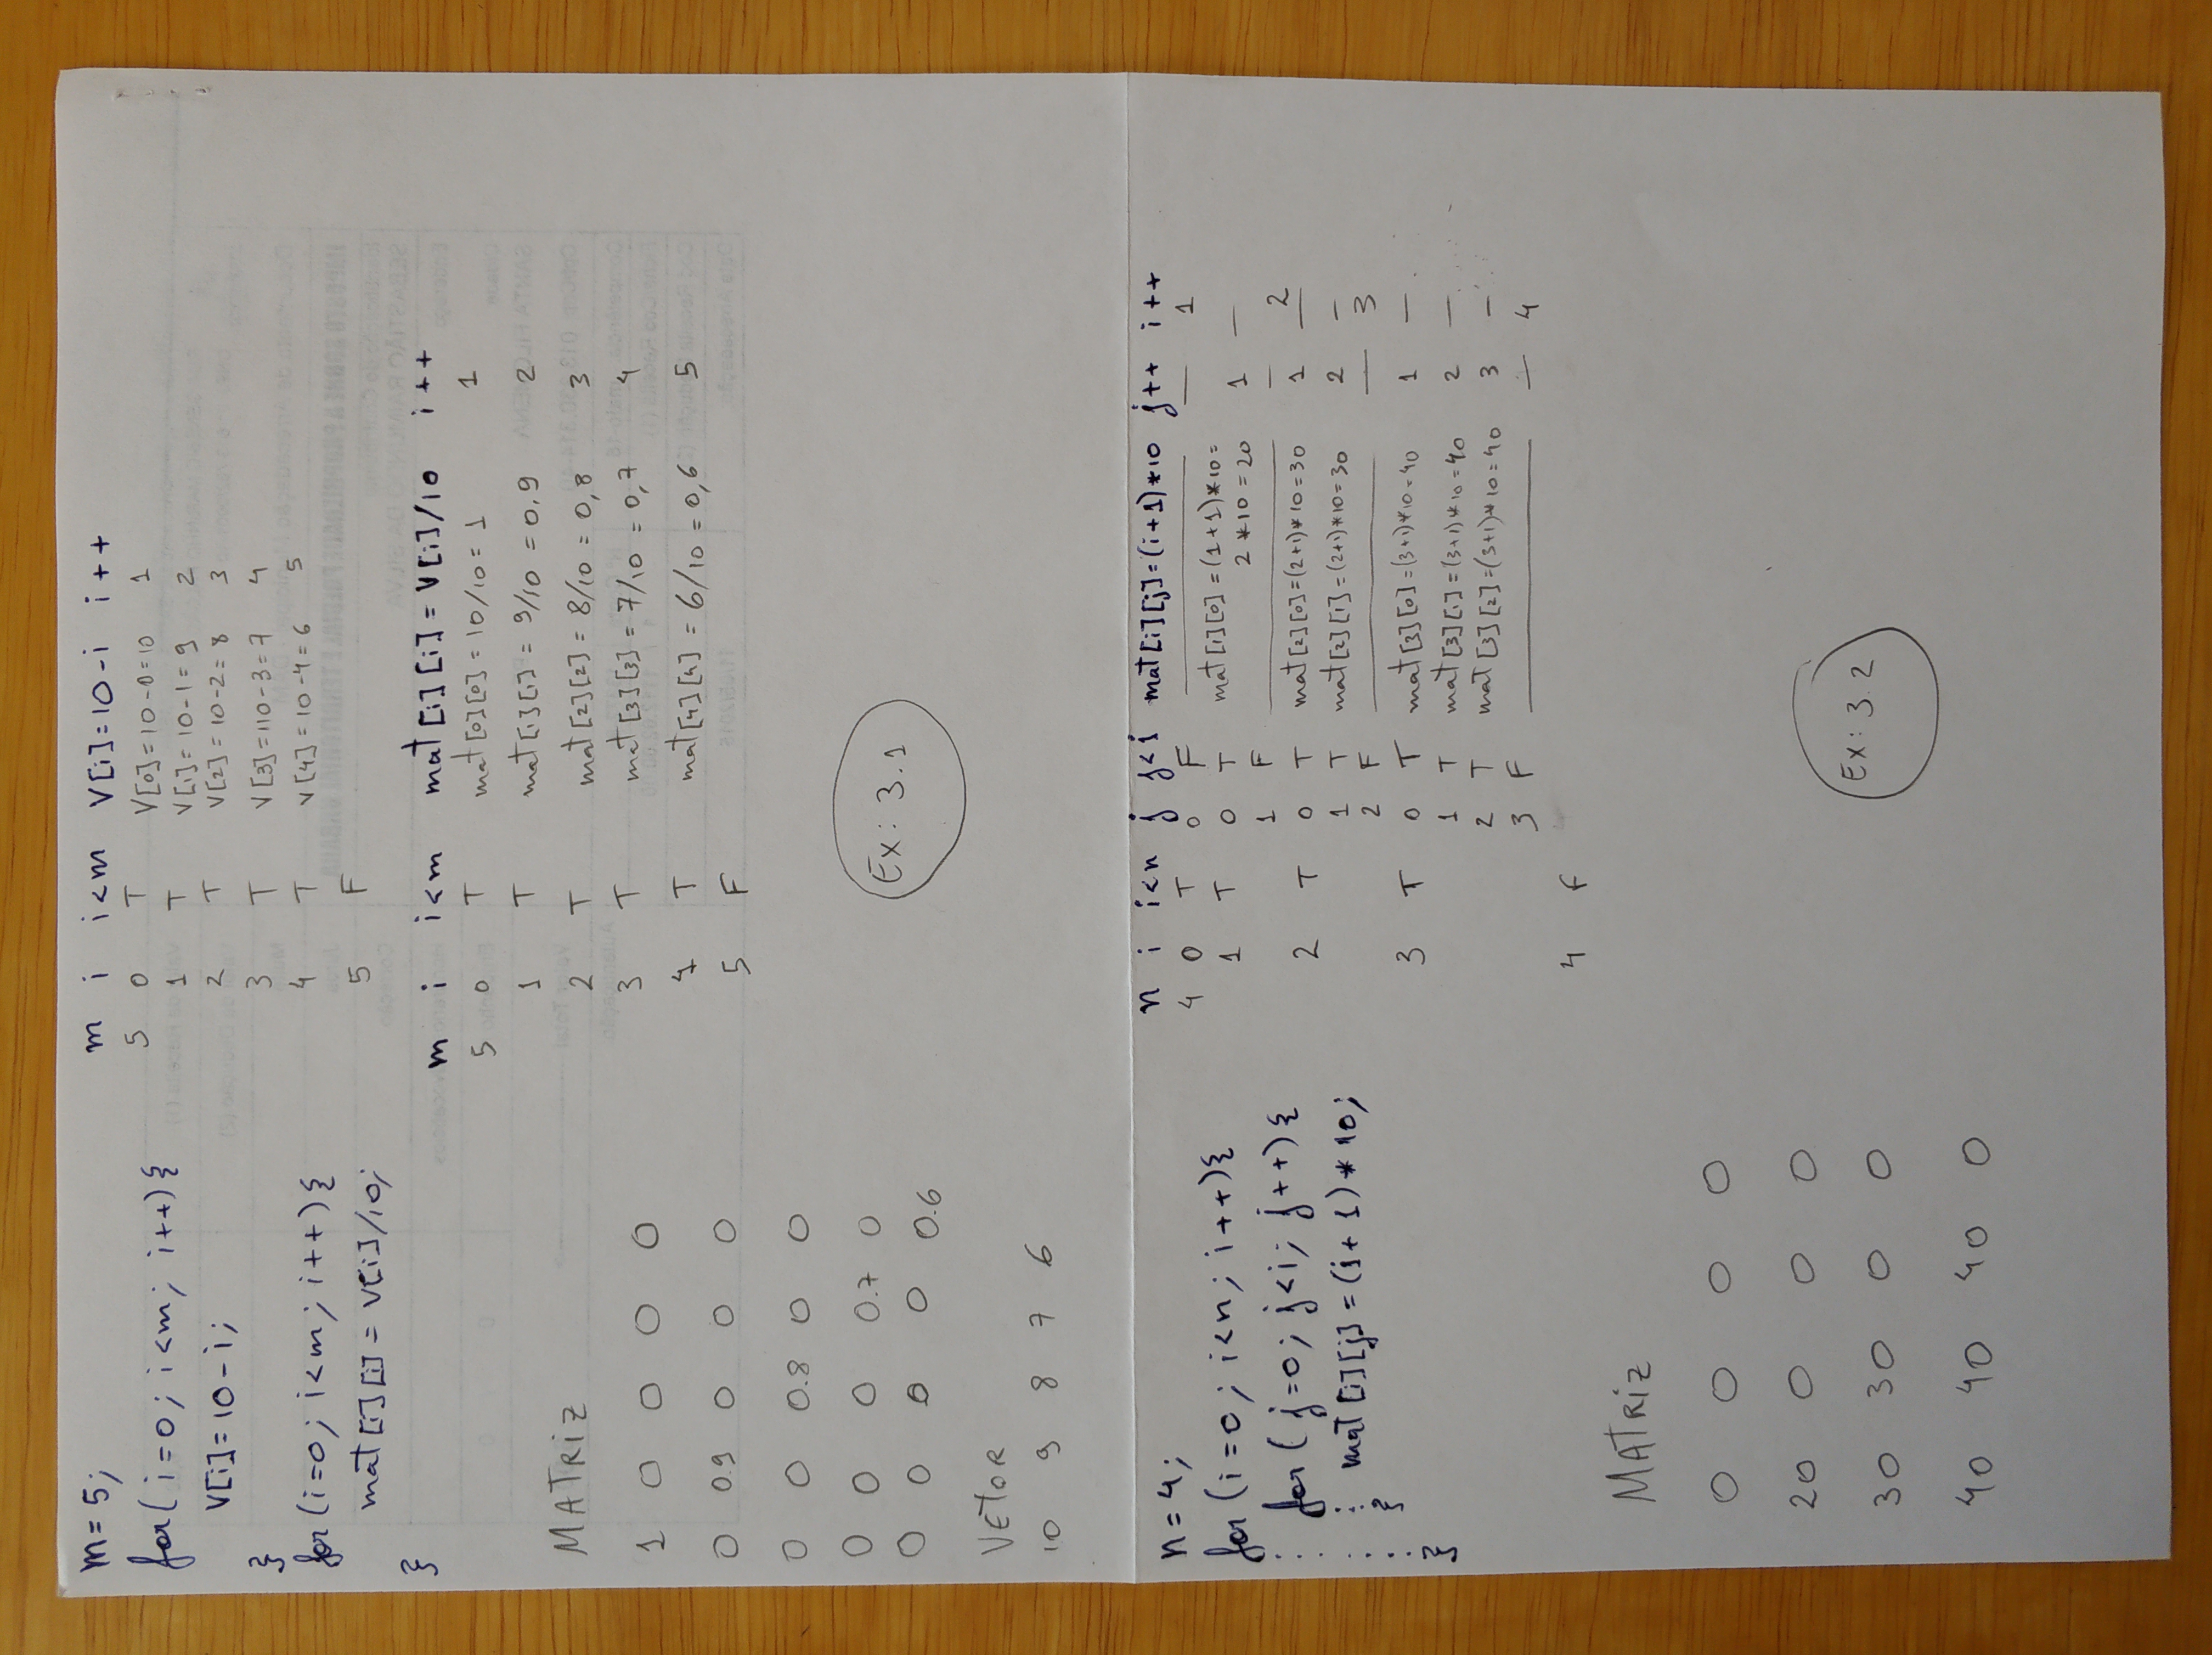 m = 5;
for( i=0; i<m; i++){
V[i]=10-i;
}
for(i=0; i<m; i++){
mat[i][i] = V[i]/10;
}
m i i<m V[i]=10-i i++
5 0 T V[0]=10-0=10 1
1 T V[1]=10-1=9 2
2 T V[2]=10-2=8 3
3 T V[3]=110-3=7 4
4 T V[4]=10-4=6 5
5 F
m i i<m mat[i][i]=V[i]/10 i++
5 0 T mat[0][0]=10/10=1 1
1 T mat[1][1]=9/10=0,9 2
2 T mat[2][2]=8/10=0,8 3
3 T mat[3][3]=7/10=0,7 4
4 T mat[4][4]=6/10=0,6 5
5 F
MATRIZ
1 0 0 0 0
0 0.9 0 0 0
0 0 0.8 0 0
0 0 0 0.7 0
0 0 0 0 0.6
Ex: 3.1
VETOR
10 9 8 7 6
n=4;
for(i=0; i<n; i++){
for(j=0; j<i; j++){
mat[i][j]=(i+1)*10;
}
}
n i i<n j j<i mat[i][j]=(i+1)*10 j++ i++
4 0 T 0 F — — 1
1 T 0 T mat[1][0]=(1+1)*10=
2*10=20 1 —
1 F — — 2
2 T 0 T mat[2][0]=(2+1)*10=30 1 —
1 T mat[2][1]=(2+1)*10=30 2 —
2 F — — 3
3 T 0 T mat[3][0]=(3+1)*10=40 1 —
1 T mat[3][1]=(3+1)*10=40 2 —
2 T mat[3][2]=(3+1)*10=40 3 —
3 F — — 4
4 F
MATRIZ
0 0 0 0
20 0 0 0
30 30 0 0
40 40 40 0
Ex: 3.2